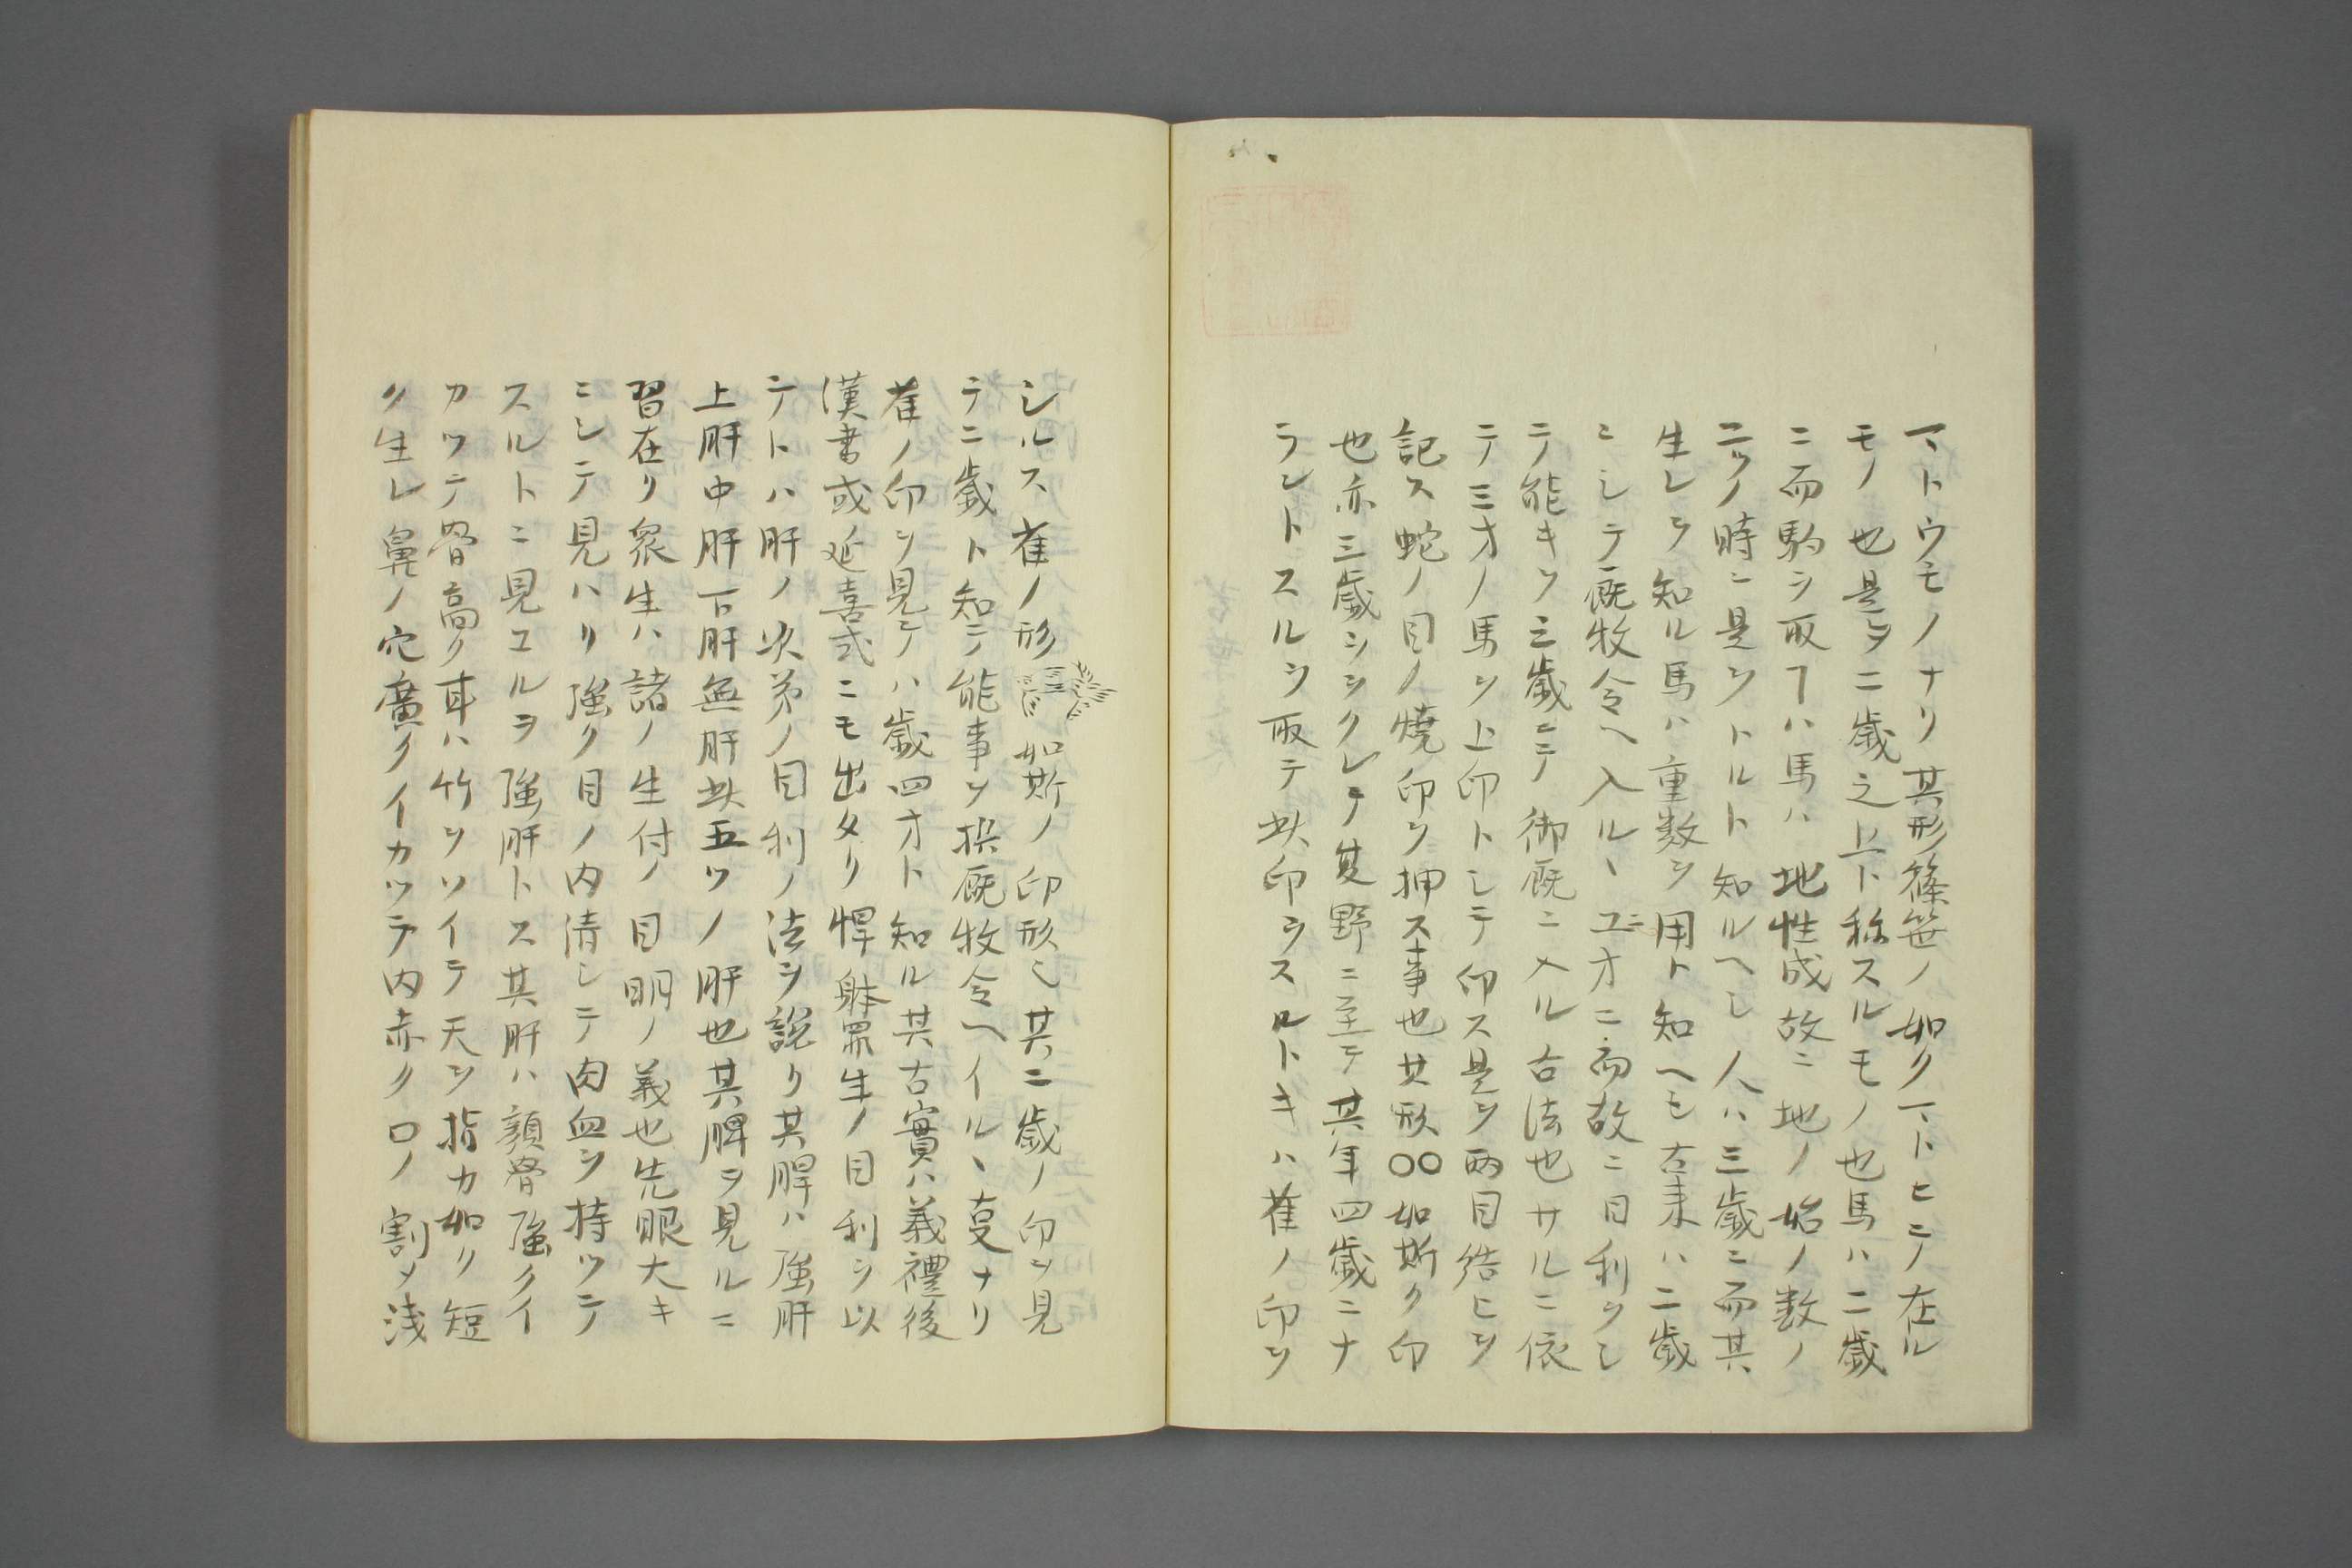 マトウモノナリ其形篠笹ノ如クマトヒテ在ル
モノ也是ヲ二歳之上ト称スルモノ也馬ハ二歳
ニ而駒ヲ取ヿハ馬ハ地性成故ニ地ノ始ノ数ノ
二ツノ時ニ是ヲトルト知ルヘシ人ハ三歳ニ而其
生レヲ知ル馬ハ重数ヲ用ト知ヘシ古来ハ二歳
ニシテ厩牧令ヘ入ルヽユニオニ而故ニ目利ヲシ
テ能キヲ三歳ニテ御厩ニ入ル古法也サルニ依
テ三才ノ馬ヲ上印トシテ印ス是ヲ両目結ヒヲ
記ス蛇ノ目ノ焼印ヲ押ス事也其形〇〇如斯ク印
也亦三歳ヲシクレテ其野ニ至テ其年四歳ニナ
ラントスルヲ取テ此印ヲスルトキハ雀ノ印ヲ
シルス雀ノ形如斯ノ印形也其二歳ノ印ヲ見
テ二歳ト知テ能事ヲ撰厩牧令ヘイルヽ叓ナリ
雀ノ印ヲ見テハ歳四才ト知ル其古實ハ義禮後
漢書或延喜式ニモ出タリ悍躰衆生ノ目利ヲ以
テトハ肝ノ次第ノ目利ノ法ヲ説リ其脾ハ強肝
上肝中肝下肝無肝此五ツノ肝也其脾ヲ見ルニ
習在リ衆生ハ諸ノ生付ノ目明ノ義也先眼大キ
ニシテ見ハリ強ク目ノ内清シテ肉血ヲ持ツテ
スルトニ見ユルヲ強肝トス其肝ハ頬骨強クイ
カツテ骨高ク耳ハ竹ヲソイテ天ヲ指カ如ク短
ク生レ鼻ノ穴廣クイカツテ内赤ク口ノ割メ浅